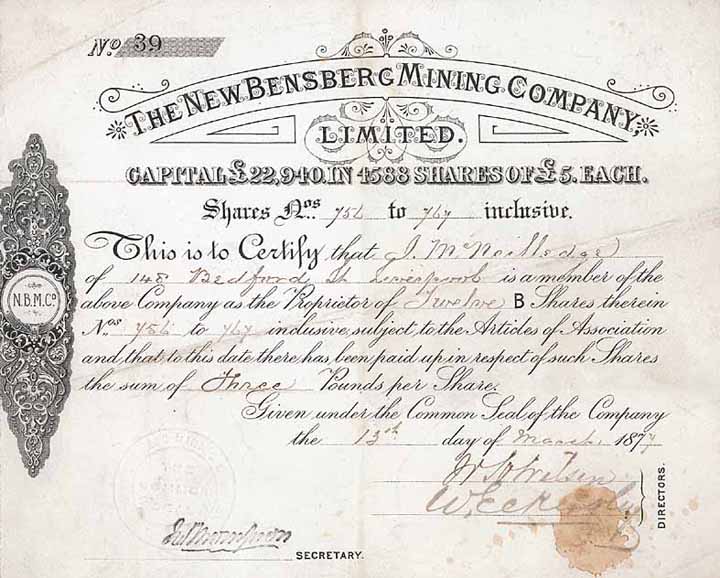 No. 39
THE NEW BENSBERG MINING COMPANY,
LIMITED.
CAPITAL £22,940. IN 4588 SHARES OF £5. EACH.
Shares Nos. 756 to 767 inclusive.
This is to Certify that J. McNeilledge
of 148 Bedford St Liverpool is a member of the
above Company as the Proprietor of Twelve B Shares therein
Nos 756 to 767 inclusive, subject, to the Articles of Association
and, that to this date, there has, been paid up, in respect of such Shares
the sum of Three Pounds per Share.
Given under the Common Seal of the Company
the 13th day of March, 1877
N.B.M.Co.
DIRECTORS.
SECRETARY.